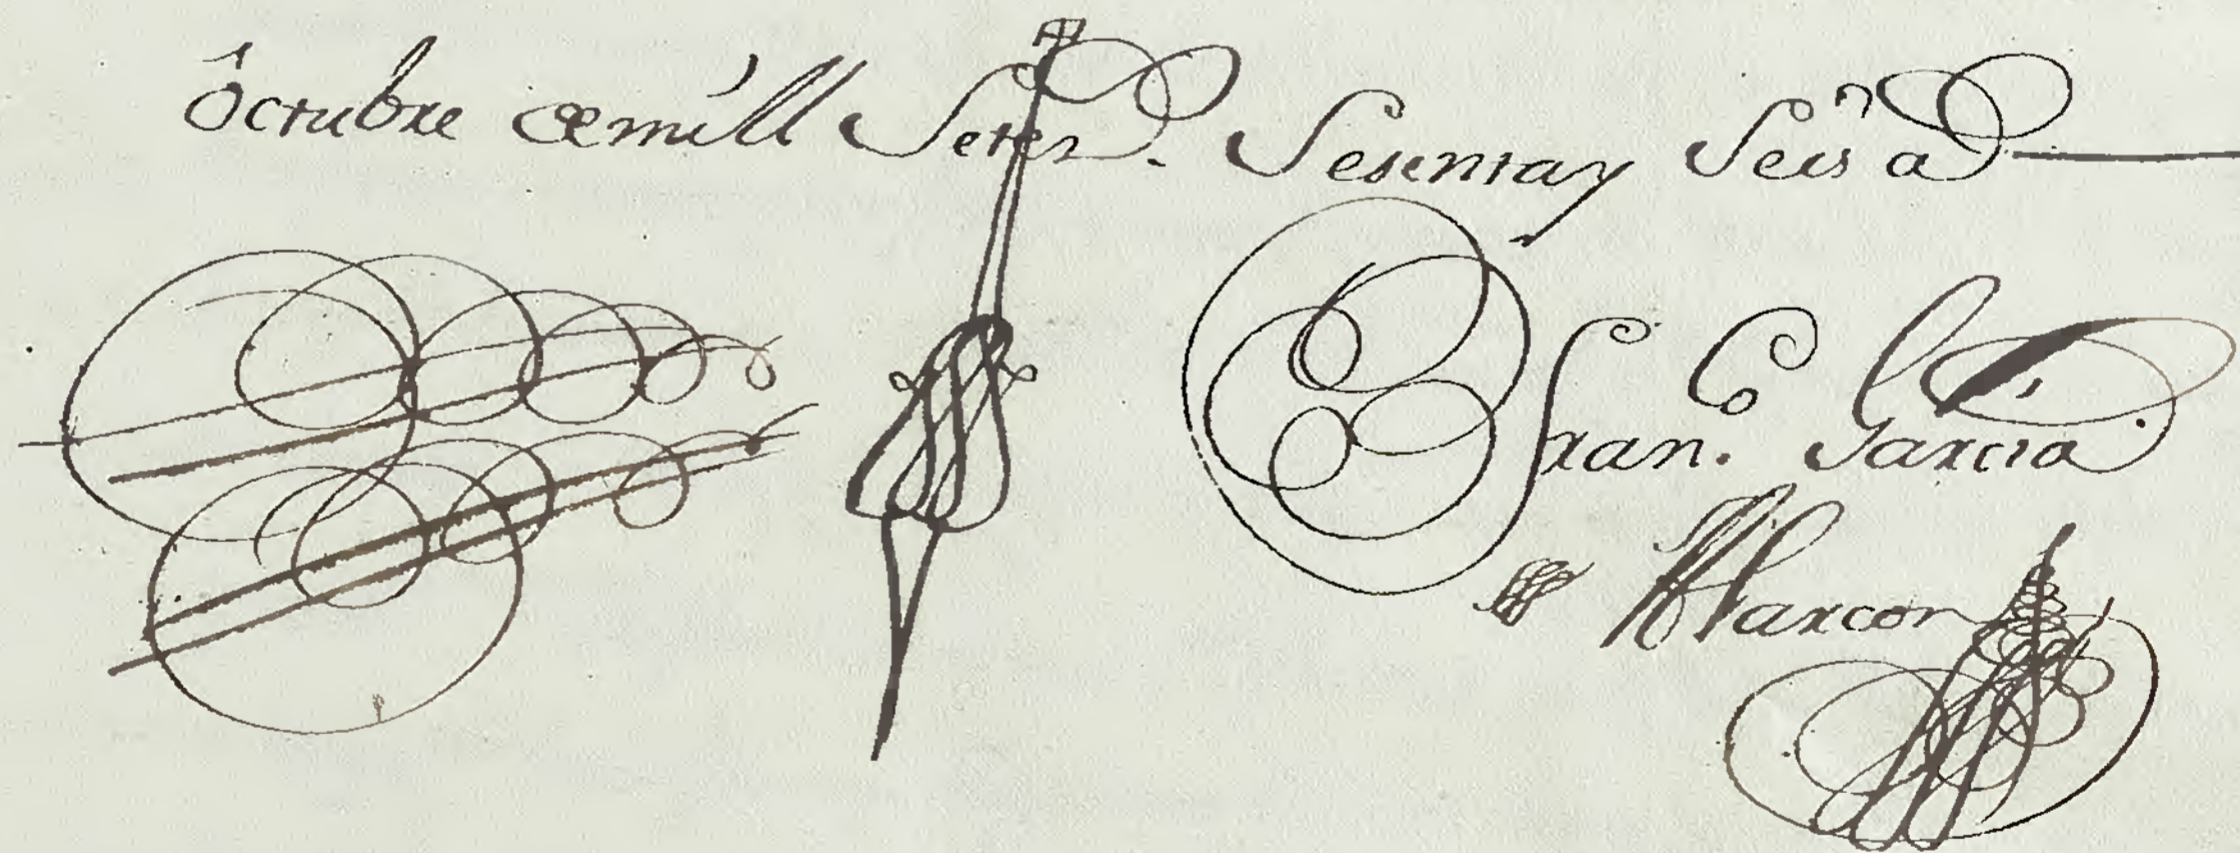 Octubre de mill Seteᵗˢ. Sesenta y Seis aˢ
Franᶜᵒ. Garcia
Alarcon